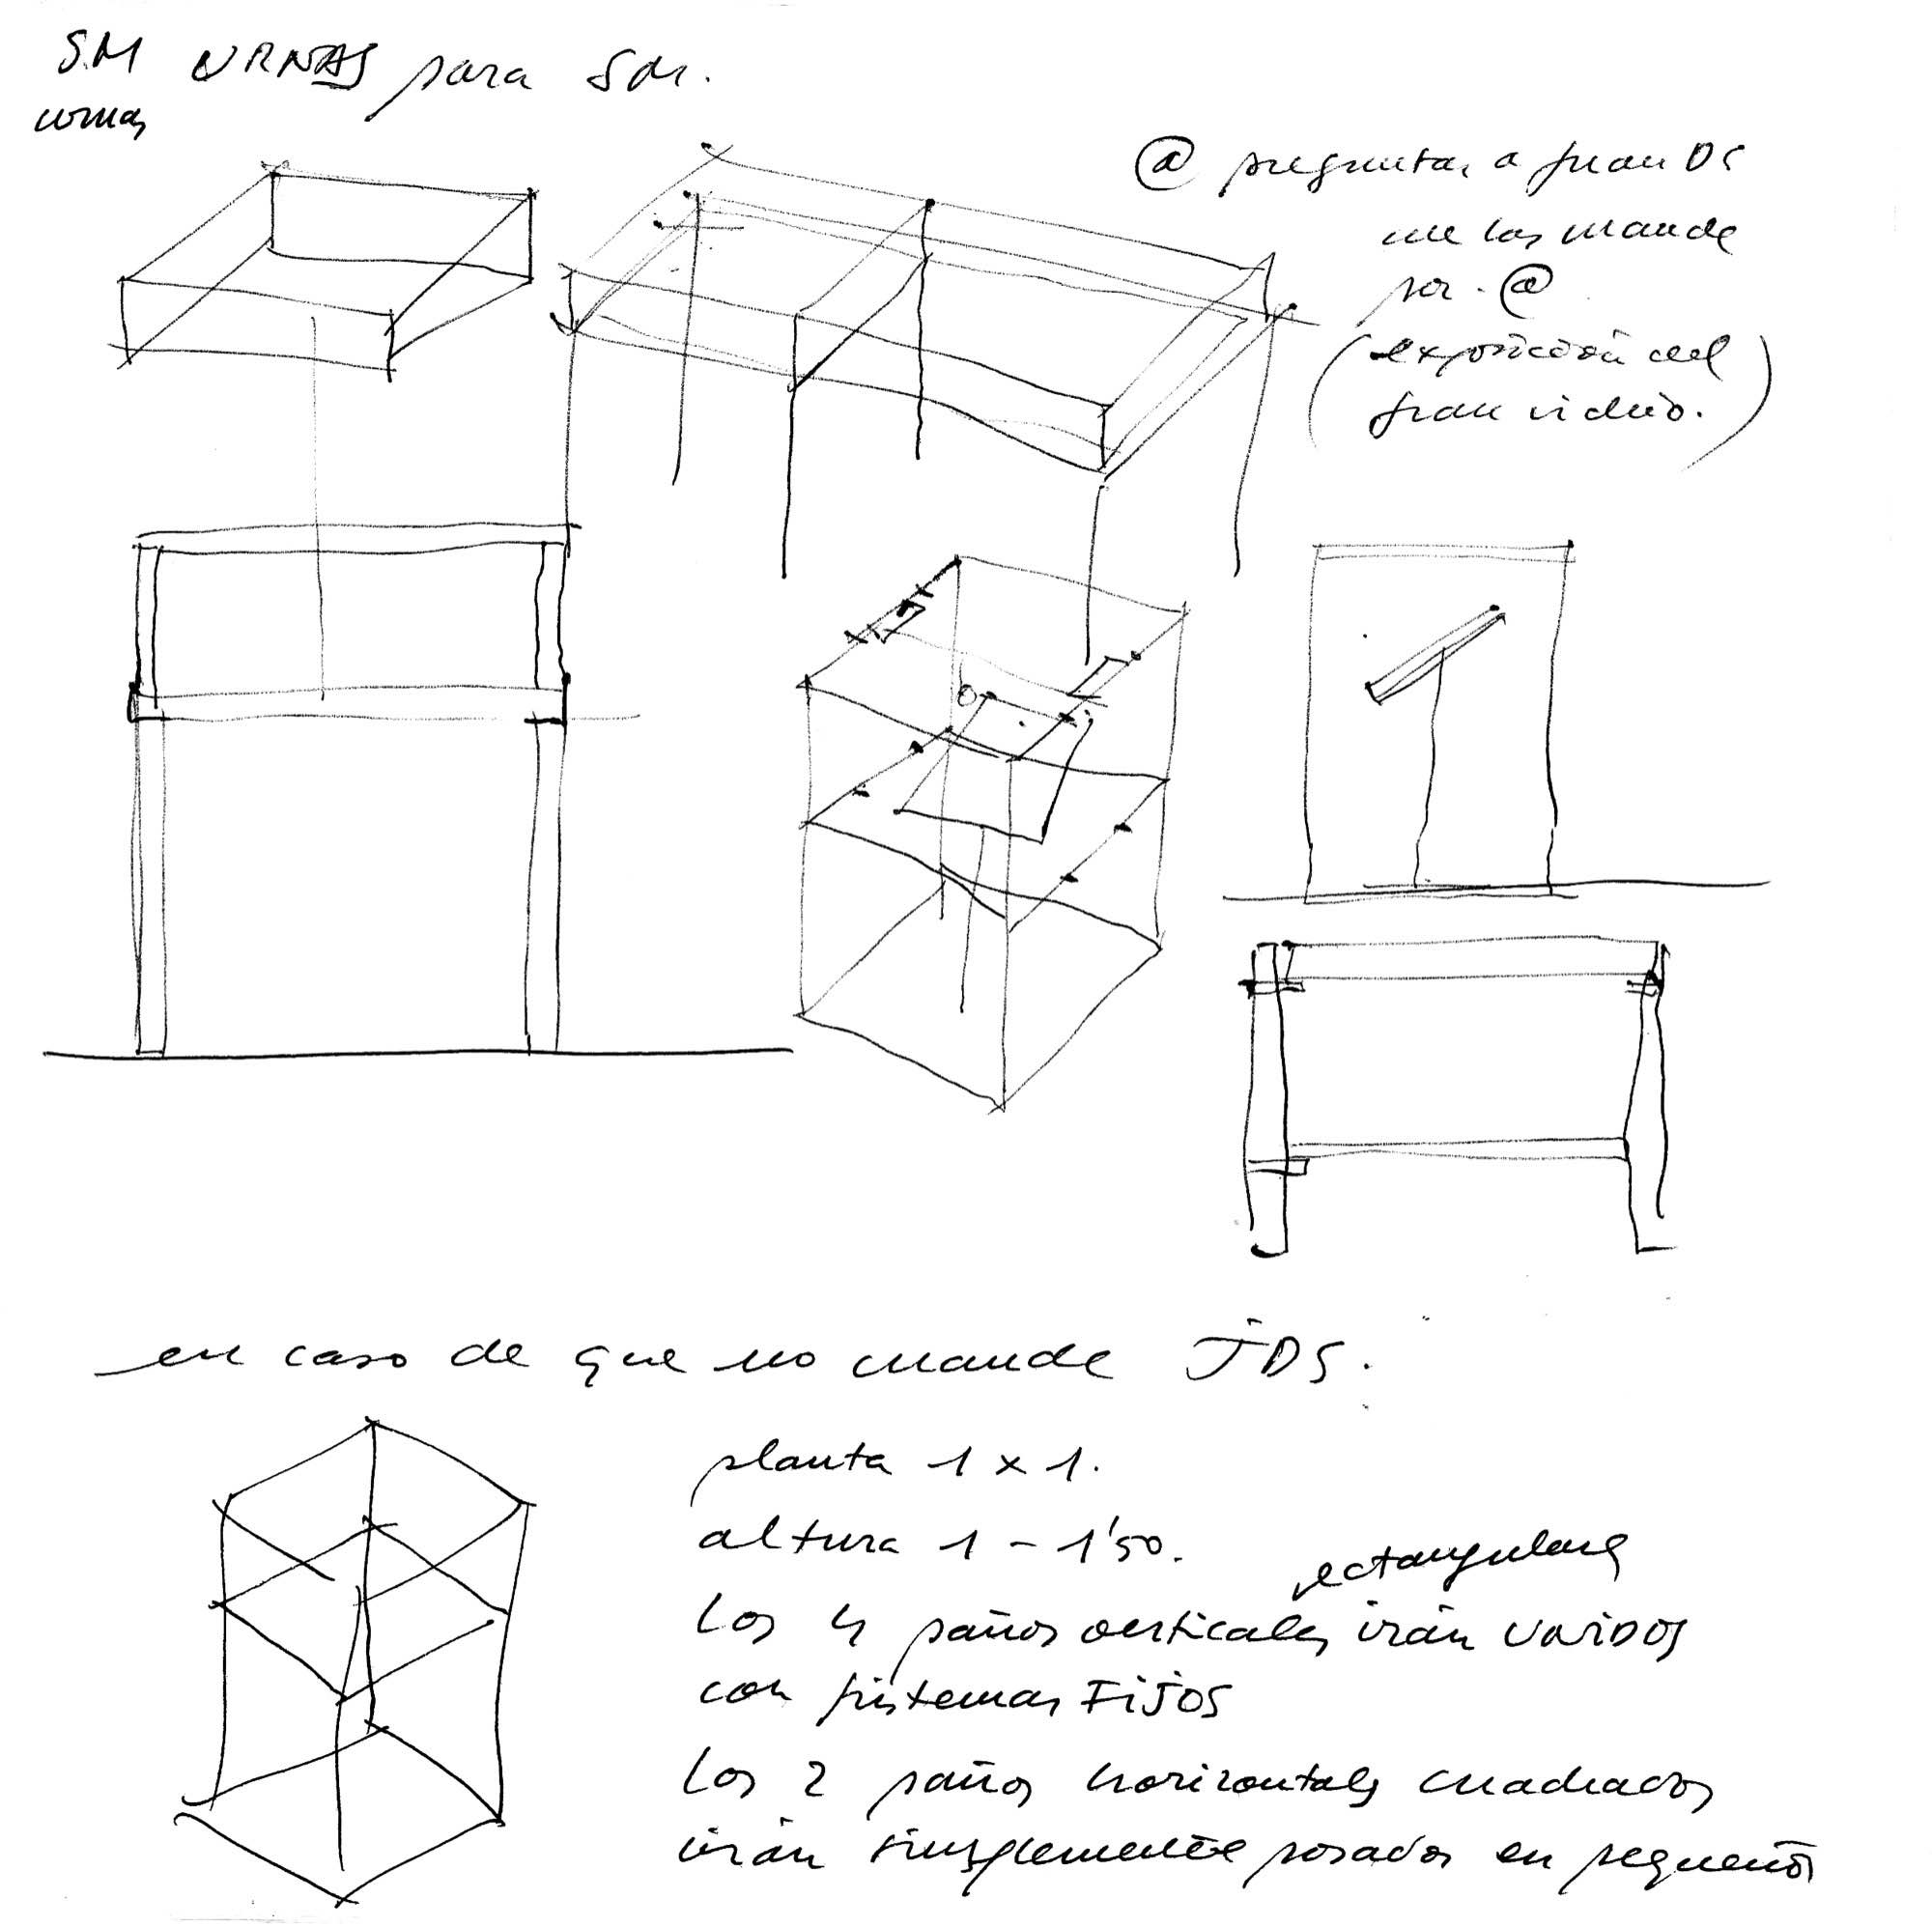 SM URNAS para SM.
urnas
@ preguntar a Juan DS
me las mande
por @
(exposición del
gran vidrio.)
en caso de que no mande JDS.
planta 1 x 1.
altura 1 - 1'50.
rectangulares
Los 4 paños verticales irán UNIDOS
con sistemas FIJOS
Los 2 paños horizontales cuadrados
irán simplemente posados en pequeños